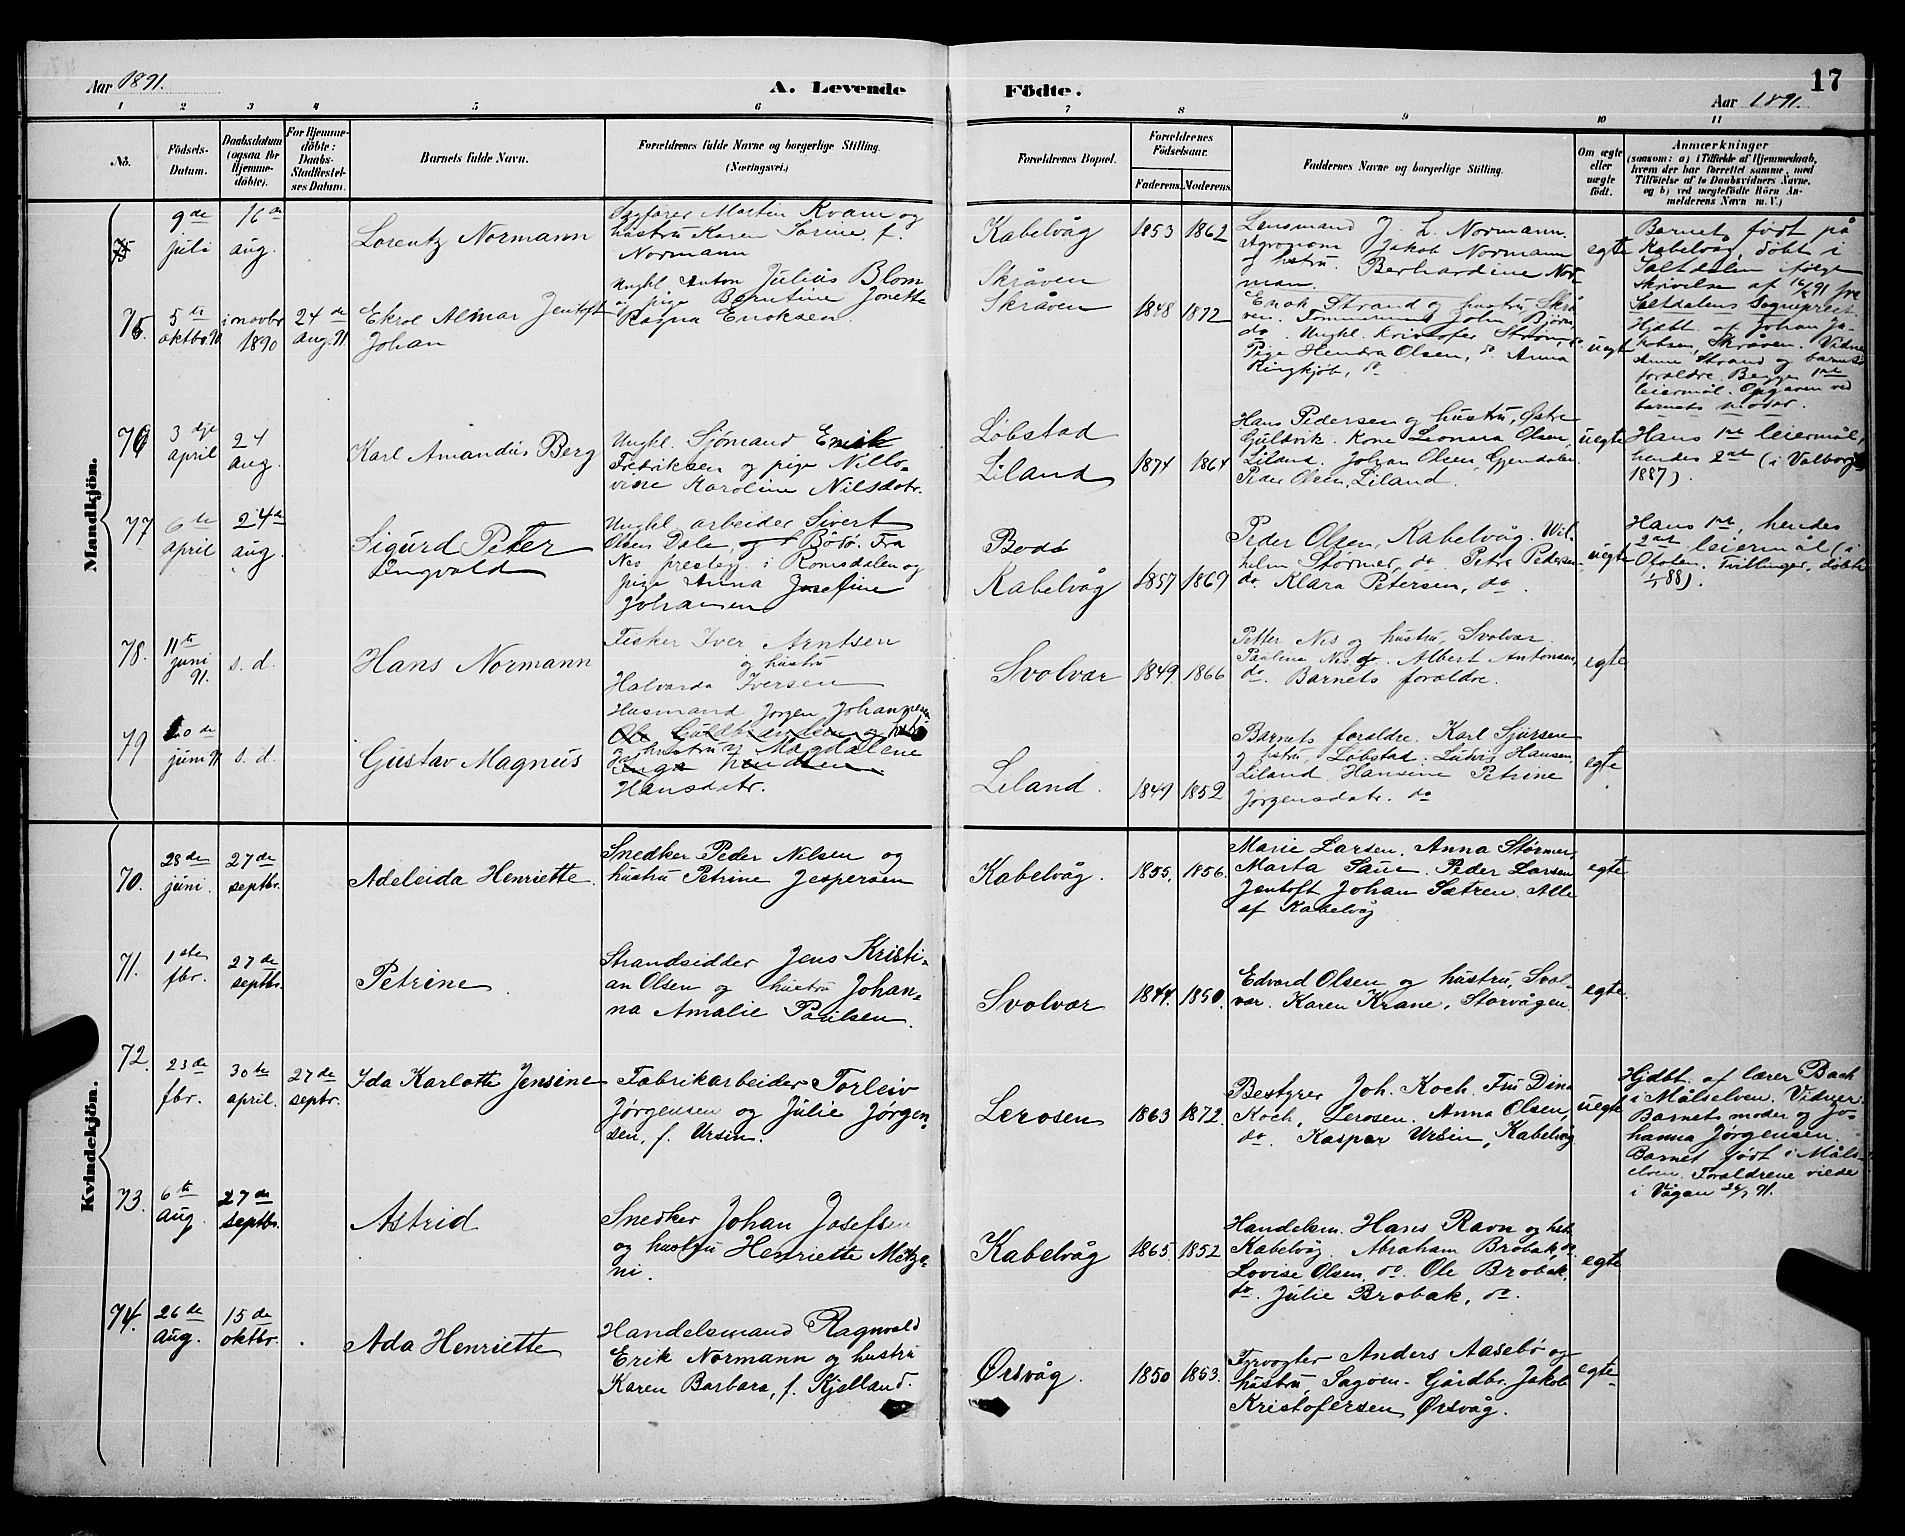 Aar 1891.
A. Levende
Födte.
17
Aar 1891.
1 2 3 4 5 6 7 8 9 10 11
No.
Födsels-
Datum.
Daabsdatum
(ogsaa for
Hjemme-
döbte).
For Hjemme-
döbte:
Daabs-
Stadfæstel-
ses Datum.
Barnets fulde Navn.
Forældrenes fulde Navne og borgerlige Stilling.
(Næringsvei.)
Forældrenes Bopæl.
Forældrenes
Födselsaar.
Faderens. Moderens.
Faddernes Navne og borgerlige Stilling.
Om ægte
eller
uægte
födt.
Anmærkninger
(saasom: a) i Tilfælde af Hjemmedaab,
hvem der har forrettet samme, med
Tilföielse af to Daabsvidners Navne,
og b) ved uægtefödte Börn An-
melderens Navn m. V.)
Mandkjön.
75
9de
juli
16de
aug.
Lorentz Normann
Sagfører Martin Kvam og
hustru Karen Sørine, f.
Normann
Kabelvåg
1853 1862
Lensmand J. L. Normann.
Agronom Jakob Normann
og hstru. Berhardine Nor-
man.
egte
Barnet født på
Kabelvåg, døbt i
Saltdalen ifølge
Skrivelse af 16/8 91 fra
Saltdalens Sogneprest
75
5te
oktbr 90
i novbr
1890
24de
aug. 91
Ekrol Almar Jentoft
Johan
Ungkl Anton Julius Blom
og pige Berntine Jonette
Ragna Enoksen
Skråven
Skråven
1848 1872
Enok Strand og hustru Skrå-
ven. Tømmermand John Bjørn,
do. Ungkl. Kristofer Strøm, do
Pige Hendra Olsen, do. Anna
Ringkjøb, do
uegte
Hjdbt. af Johan Ja-
kobsen, Skråven. Vidner
Anne Strand og barnets
foraldre. Begges 1ste
leiermål. Opgaven ved
barnets moder.
76
3dje
april
24
aug.
Karl Amandus Berg
Ungkl. Sjømand Emil
Fredriksen og pige Nillo-
vine Karoline Nilsdatr.
Løbstad
Liland
1874 1864
Hans Pedersen og hustru, Østre
Guldvik. Kone Leonara Olsen,
Liland. Johan Olsen, Gjendalen
Peder Olsen, Liland.
uegte
Hans 1ste leiermål,
hendes 2det (i Valborg
1887).
77
6te
april
24de
aug.
Sigurd Peter
Lingvald
Ungkl. arbeider Sivert
Olsen Dale, Bodø. Fra
Nes presteg. i Romsdalen og
pige Anna Josefine
Johansen
Bodø
Kabelvåg
1857 1869
Peder Olsen, Kabelvåg. Wil-
helm Størmer, do. Petra Pedersen
do. Klara Petersen, do.
uegte
Hans 1ste, hendes
2det leiermål (i
Ototen. Tvillinger, døbte
1/1 88).
78.
11te
juni
91.
s. d.
Hans Normann
Fisker Iver Arntsen
og hustru
Halvarda Iversen
Svolvær
1849. 1866
Petter Nes og hustru, Svolvær.
Paulina Nes do. Albert Antonsen,
do. Barnets forældre.
egte
79
20de
juni 91
s. d.
Gustav Magnus
Husmand Jørgen Johannesen
Ole Guldbrandsen og hustru
og hustru Magdalene
Inga Knudsen
Hansdatr.
Liland.
1849 1852
Barnets foraldre. Karl Sjursen
og hstru, Løbstad. Ludvig Hansen,
Liland. Hansine Petrine
Jørgensdatr. do
egte
Kvindekjön.
70.
28de
juni.
27de
septbr.
Adeleida Henriette.
Snedker Peder Nilsen og
hustru Petrine Jespersen
Kabelvåg.
1855. 1856.
Marie Larsen. Anna Størmer,
Marta Saue. Peder Larsen
Jentoft Johan Sætren. Alle
af Kabelvåg
egte
71.
1ste
fbr.
27de
septbr.
Petrine
Strandsidder Jens Kristi-
an Olsen og hustru Johan-
na Amalie Paulsen.
Svolvær
1844. 1850.
Edvard Olsen og hustru, Svol-
vær. Karen Krane, Storvågen.
egte.
72.
23de
fbr.
30te
april.
27de
septbr.
Ida Karlotte Jensine
Fabrikarbeider Torleiv
Jørgensen og Julie Jørgen-
sen, f. Ursin.
Lerosen
1863 1872.
Bestyrer Joh. Koch. Fru Dina
Koch, Lerosen. Anna Olsen,
do. Kaspar Ursin, Kabelvåg
uegte
Hjdbt. af lærer Bach
i Målselven. Vidner
Barnets moder og Jo-
hanna Jørgensen.
Barnet født i Måls-
elven. Foraldrene viede
i Vågan 26/7 91.
73.
6te
aug.
27de
septbr.
Astrid
Snedker Johan Josefsen
og hustru Henriette Metzo-
ni.
Kabelvåg
1865 1852
Handelsm. Hans Ravn og hstr.
Kabelvåg. Abraham Brobak, do.
Lovise Olsen, do. Ole Brobak,
do. Julie Brobak, do.
egte
74.
26de
aug.
15de
oktbr.
Ada Henriette
Handelsmand Ragnvald
Erik Normann og hustru
Karen Barbara, f. Kjelland.
Ørsvåg.
1850 1853.
Fyrvogter Anders Aasebø og
hustru, Sagøen. Gårdbr. Jakob
Kristofersen Ørsvåg.
egte